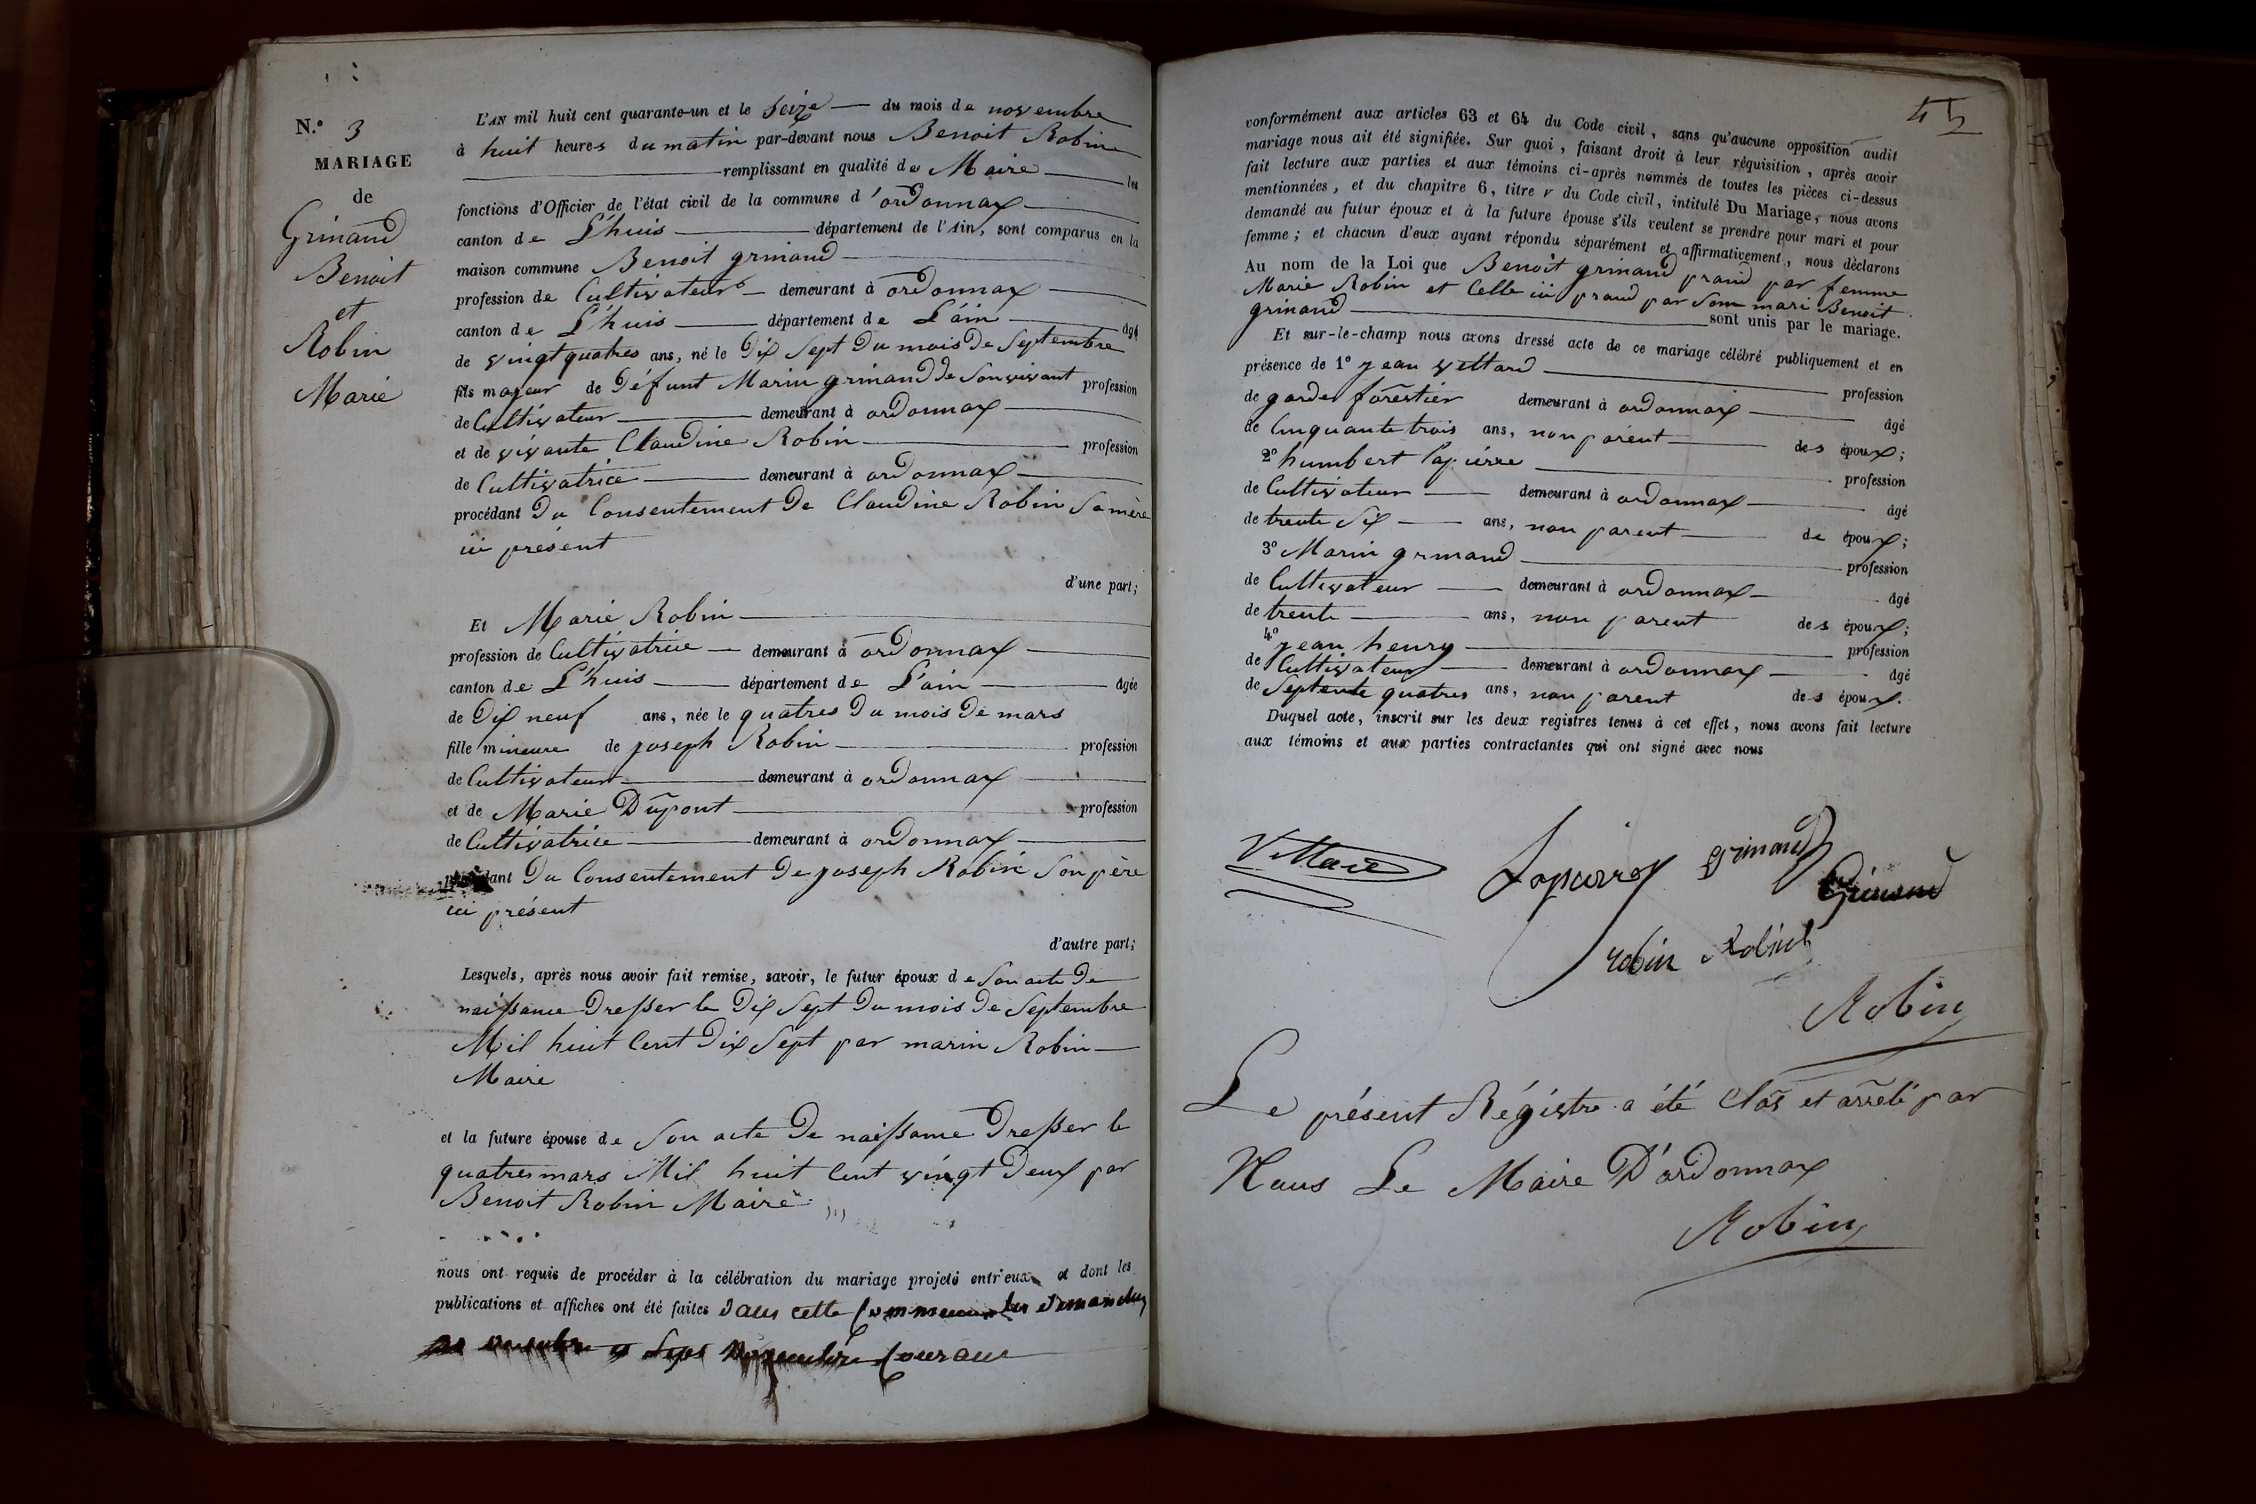 N.º 3
MARIAGE
de
Grinand
Benoit
et
Robin
Marie
L'AN mil huit cent quarante-un et le Seize du mois de novembre
à huit heures du matin par-devant nous Benoit Robin
remplissant en qualité de Maire les
fonctions d'Officier de l'état civil de la commune d'ordonnax
canton de L'huis département de l'Ain, sont comparus en la
maison commune Benoit grinand
profession de Cultivateur demeurant à ordonnax
canton de L'huis département de L'ain âgé
de vingt quatres ans, né le Dix Sept Du mois De Septembre
fils majeur de Défunt Marin grinand de Son vivant profession
de Cultivateur demeurant à ordonnax
et de vivante Claudine Robin profession
de Cultivatrice demeurant à ordonnax
procédant Du Consentement De Claudine Robin Sa mère
ici présent
d'une part;
Et Marie Robin
profession de Cultivatrice demeurant à ordonnax
canton de L'huis département de L'ain âgée
de Dix neuf ans, née le quatres Du mois De mars
fille mineure de joseph Robin profession
de Cultivateur demeurant à ordonnax
et de Marie Dupont profession
de Cultivatrice demeurant à ordonnax
procédant Du Consentement De joseph Robin Son père
ici présent
d'autre part;
Lesquels, après nous avoir fait remise, savoir, le futur époux de Son acte De
naissance Dresser le Dix Sept Du mois De Septembre
Mil huit Cent Dix Sept par marin Robin
Maire
et la future épouse de Son acte De naissance Dresser le
quatres mars Mil huit Cent vingt Deux par
Benoit Robin Maire
nous ont requis de procéder à la célébration du mariage projeté entr'eux et dont les
publications et affiches ont été faites dans cette Commune les dimanches
Sept Novembre Courant
45
conformément aux articles 63 et 64 du Code civil, sans qu'aucune opposition audit
mariage nous ait été signifiée. Sur quoi, faisant droit à leur réquisition, après avoir
fait lecture aux parties et aux témoins ci-après nommés de toutes les pièces ci-dessus
mentionnées, et du chapitre 6, titre V du Code civil, intitulé Du Mariage, nous avons
demandé au futur époux et à la future épouse s'ils veulent se prendre pour mari et pour
femme; et chacun d'eux ayant répondu séparément et affirmativement, nous déclarons
Au nom de la Loi que Benoit grinand prand par femme
Marie Robin et Celle ici prand par Son mari Benoit
grinand sont unis par le mariage.
Et sur-le-champ nous avons dressé acte de ce mariage célébré publiquement et en
présence de 1º jean vettard profession
de garde forestier demeurant à ordonnax âgé
de Cinquante trois ans, non parent des époux;
2º humbert lapierre profession
de Cultivateur demeurant à ordonnax âgé
de trente Six ans, non parent de époux;
3º Marin grinand profession
de Cultivateur demeurant à ordonnax âgé
de trente ans, non parent des époux;
4º jean henry profession
de Cultivateur demeurant à ordonnax âgé
de Septente quatres ans, non parent des époux.
Duquel acte, inscrit sur les deux registres tenus à cet effet, nous avons fait lecture
aux témoins et aux parties contractantes qui ont signé avec nous
Vettard
Lapierre
grinand
Grinand
robin Robin
Robin
Le présent Régistre a été Clos et arrêté par
Nous Le Maire D'ordonnax
Robin